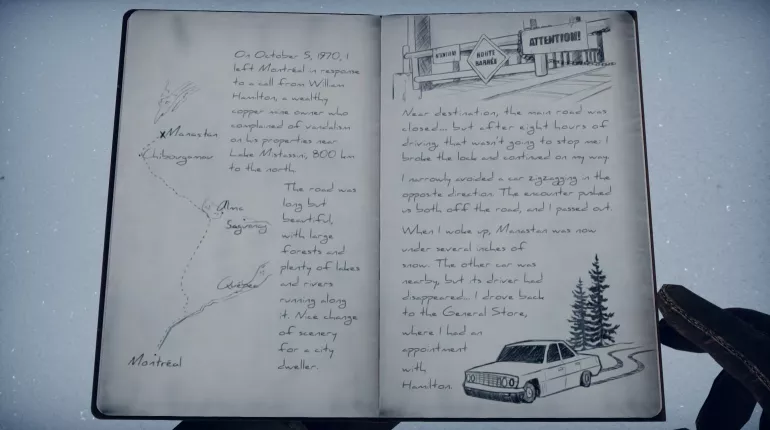 On October 5, 1970, I
left Montréal in response
to a call from William
Hamilton, a wealthy
copper mine owner who
complained of vandalism
on his properties near
Lake Mistassini, 800 km
to the north.
The road was
long but
beautiful,
with large
forests and
plenty of lakes
and rivers
running along
it. Nice change
of scenery
for a city
dweller.
Manastan
Chibougamau
Alma
Saguenay
Québec
Montréal
ROUTE
BARRÉE
ATTENTION!
Near destination, the main road was
closed... but after eight hours of
driving, that wasn't going to stop me: I
broke the lock and continued on my way.
I narrowly avoided a car zigzagging in the
opposite direction. The encounter pushed
us both off the road, and I passed out.
When I woke up, Manastan was now
under several inches of
snow. The other car was
nearby, but its driver had
disappeared... I drove back
to the General Store,
where I had an
appointment
with
Hamilton.